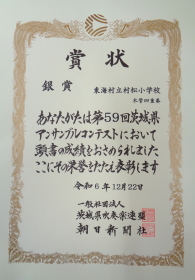 賞状
銀賞
東海村立村松小学校
木管四重奏
あなたがたは第59回茨城県
アンサンブルコンテストにおいて
頭書の成績をおさめられました
ここにその栄誉をたたえ表彰します
令和6年12月22日
一般社団法人
茨城県吹奏楽連盟
朝日新聞社